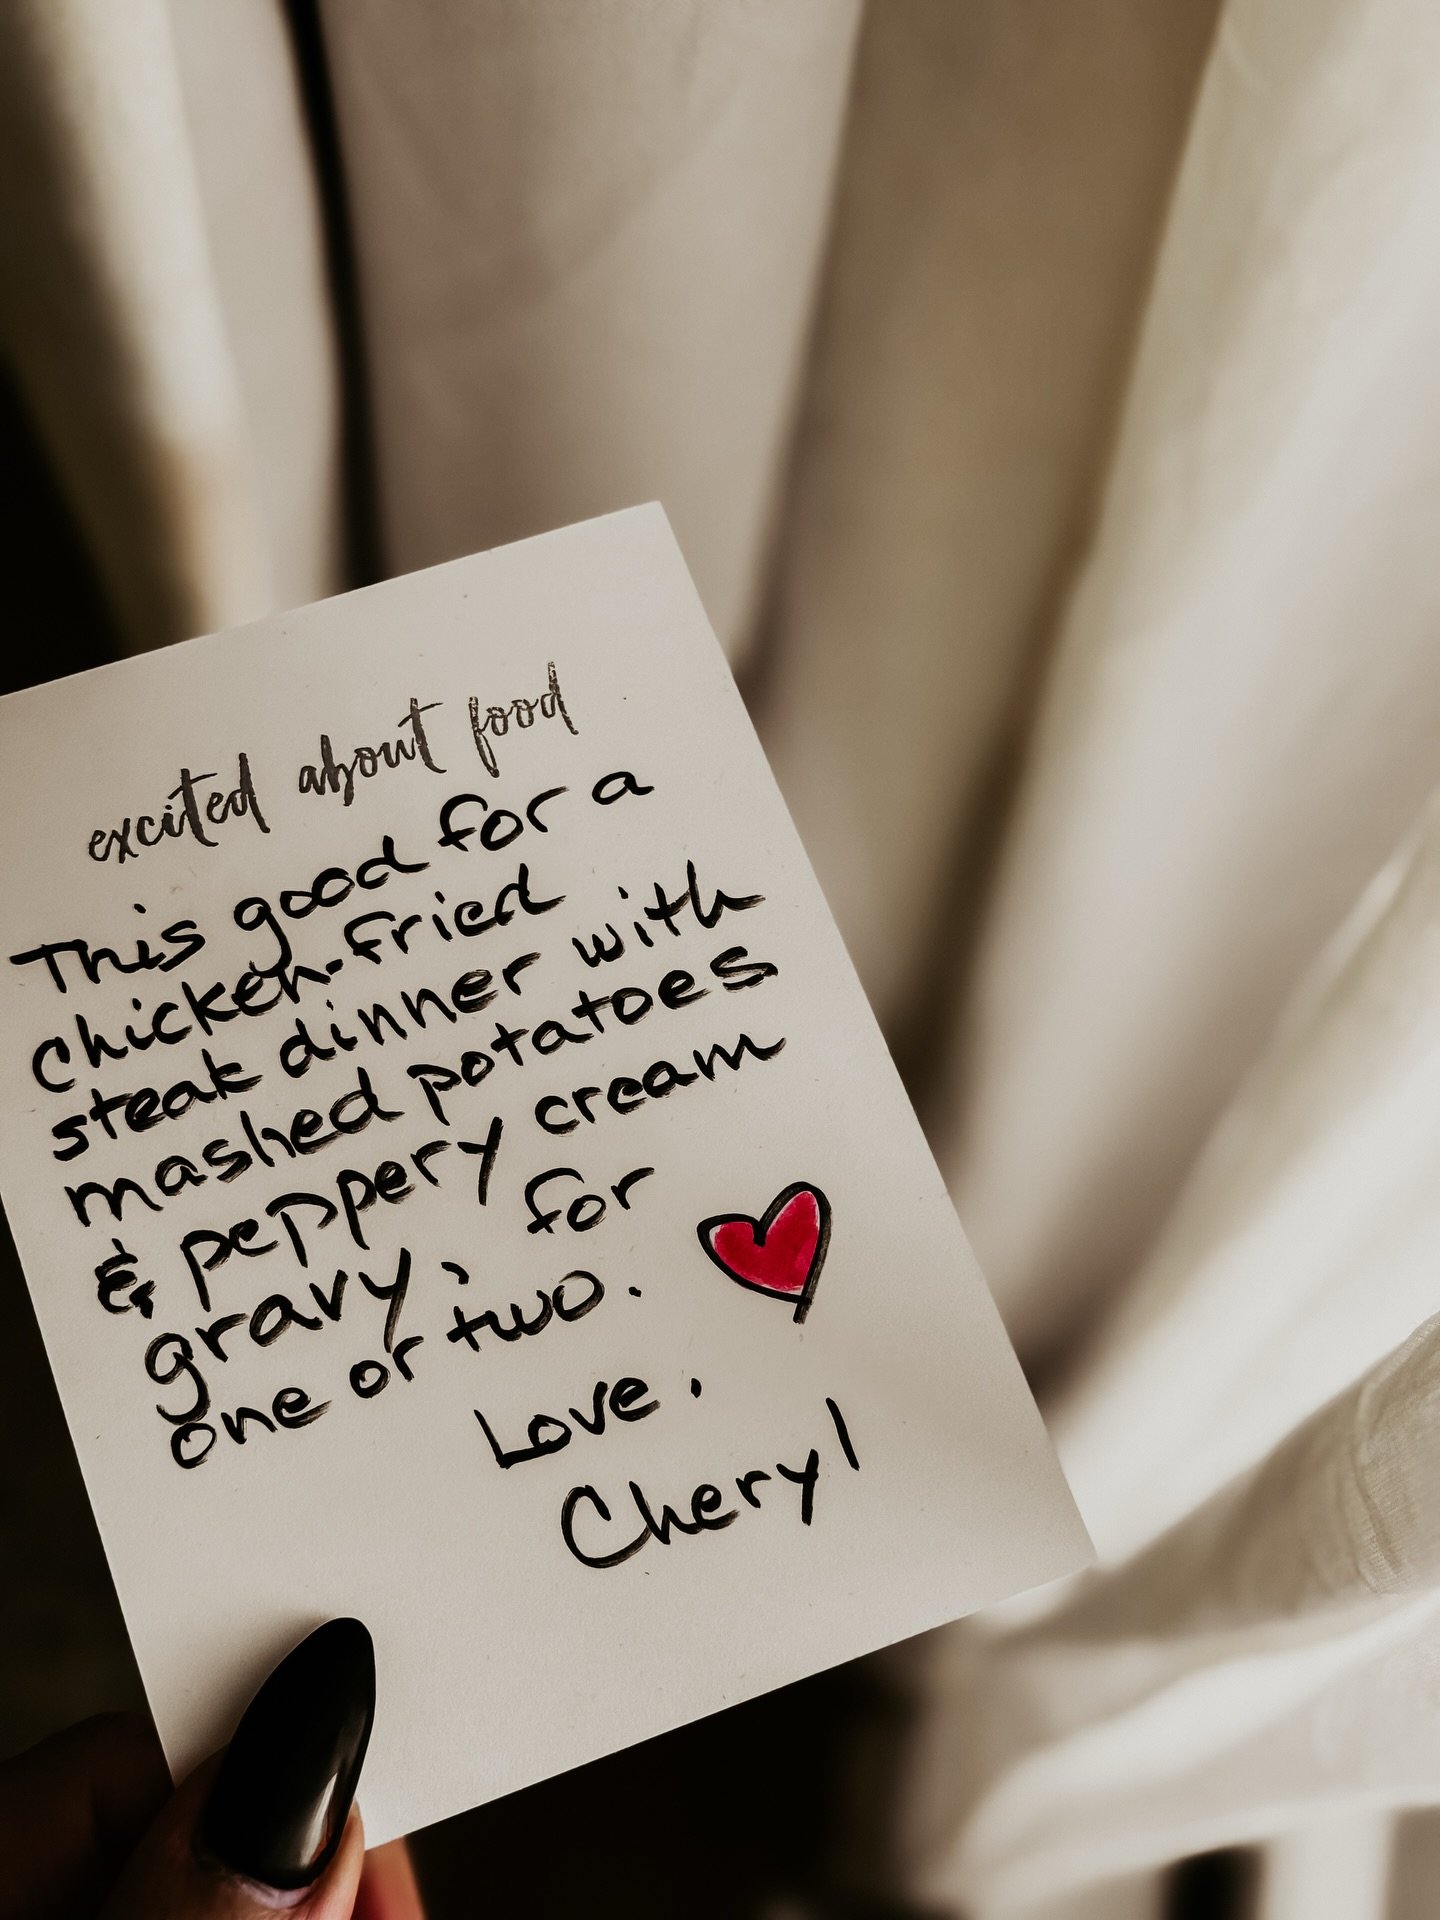 excited about food
This good for a
chicken-fried
steak dinner with
mashed potatoes
& peppery cream
gravy, for
one or two.
Love,
Cheryl